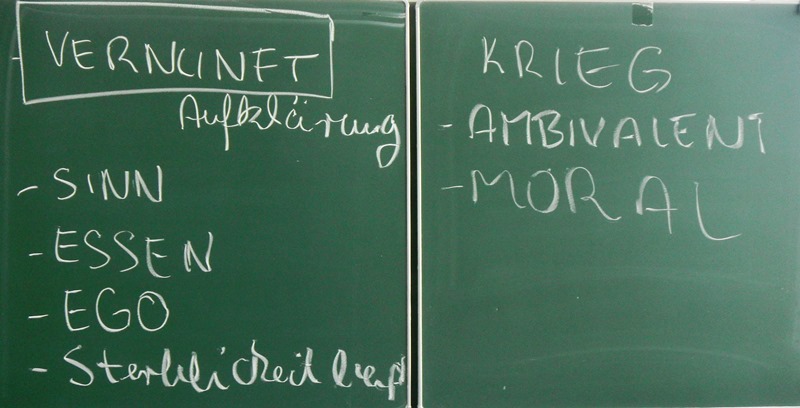 - VERNUNFT
Aufklärung
- SINN
- ESSEN
- EGO
- Sterblichkeit
KRIEG
- AMBIVALENT
- MORAL